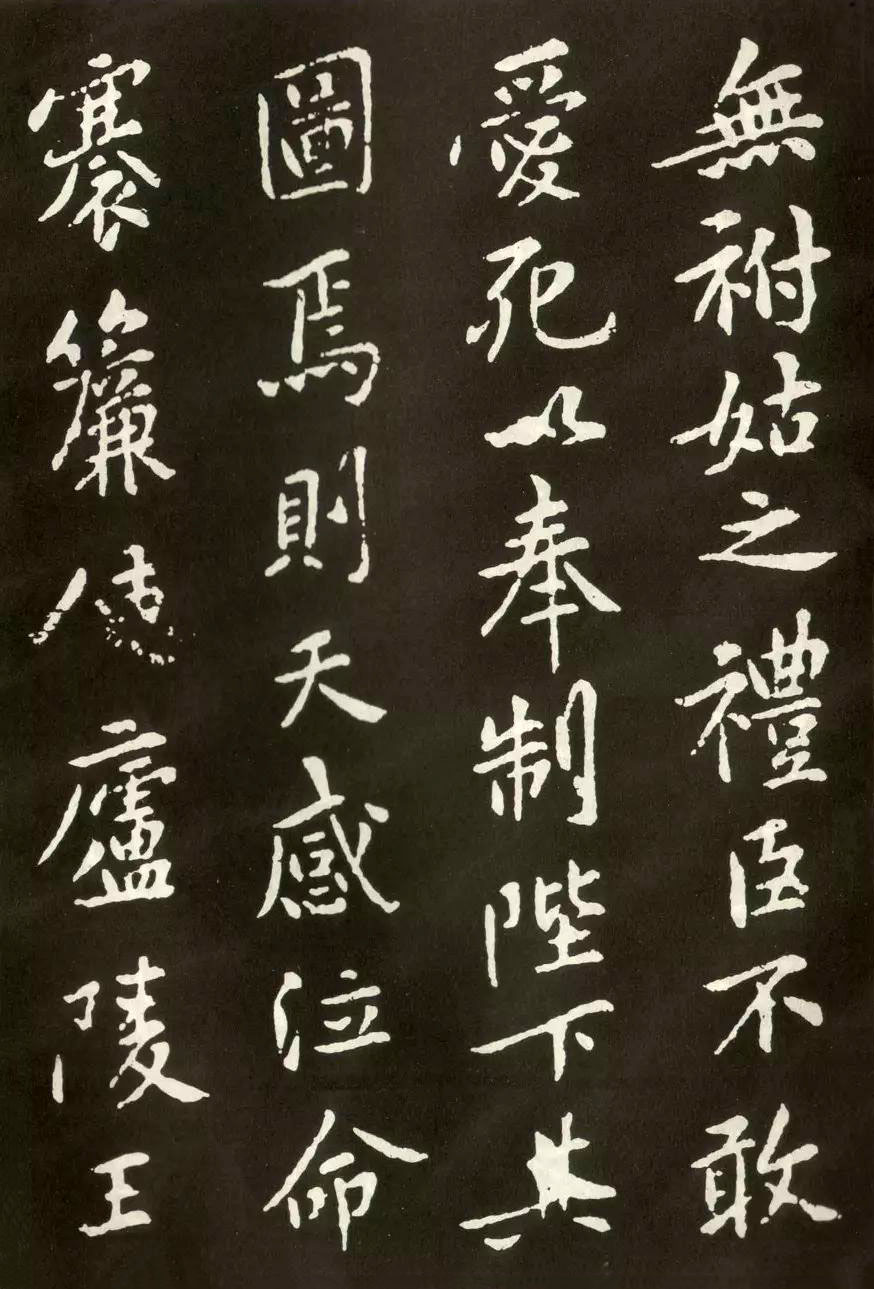 無祔姑之禮臣不敢
愛死以奉制陛下其
圖焉則天感泣命
褰簾使廬陵王